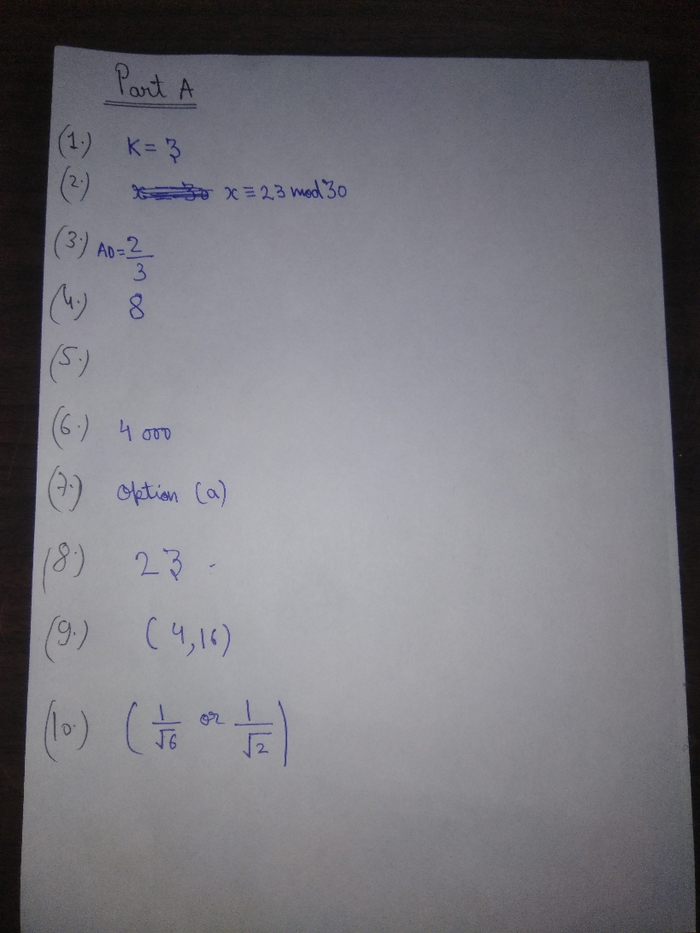 Part A
(1.) K = 3
(2.) x ≡ 23 mod 30
(3.) AD = 2/3
(4.) 8
(5.)
(6.) 4000
(7.) option (a)
(8.) 23 .
(9.) (4,16)
(10.) (1/√6 or 1/√2)